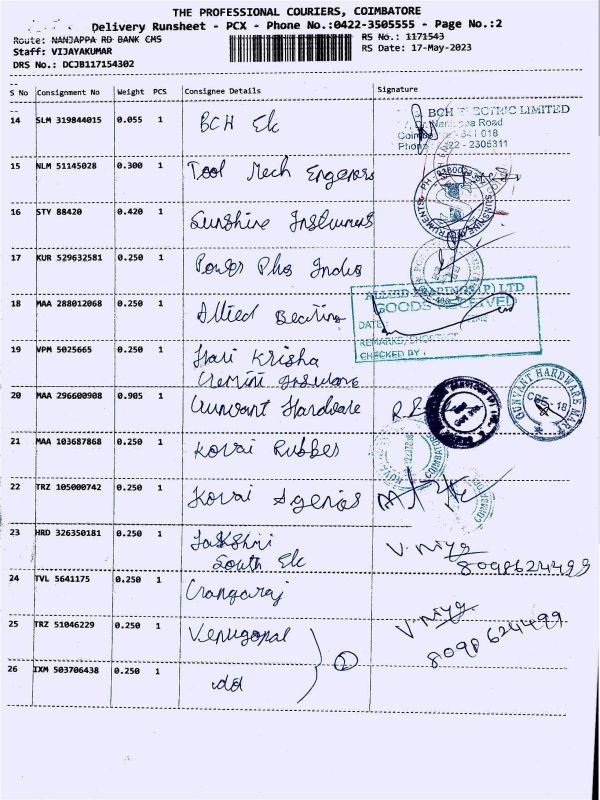 THE PROFESSIONAL COURIERS, COIMBATORE
Delivery Runsheet - PCX - Phone No.:0422-3505555 - Page No.:2
Route: NANJAPPA RD BANK CMS
RS No.: 1171543
Staff: VIJAYAKUMAR
RS Date: 17-May-2023
DRS No.: DCJB117154302
S No Consignment No Weight PCS Consignee Details Signature
14 SLM 319844015 0.055 1 BCH Ele
BCH ELECTRIC LIMITED
Road
641 018
Phone 0422 - 2305311
15 NLM 51145028 0.300 1 Tool Mech Engeners
16 STY 88420 0.420 1 Sunshine Instruments
17 KUR 529632581 0.250 1 Power Plus India
18 MAA 288012068 0.250 1 Allied Bearing
ALLIED BEARINGS (P) LTD
GOODS RECEIVED
DATE
REMARKS/SHORTAGE
CHECKED BY :
19 VPM 5025665 0.250 1 Hari Krisha
20 MAA 296600908 0.905 1 Gunvant Hardware
GUNVANT HARDWARE MART
CBE - 18
21 MAA 103687868 0.250 1 Kovai Rubber
22 TRZ 105000742 0.250 1 Kovai Agencies
23 HRD 326350181 0.250 1 Lakshmi
South Ele
V. niya
8098624499
24 TVL 5641175 0.250 1 Crangaraj
25 TRZ 51046229 0.250 1 Venugopal
V. niya
8098624499
26 IXM 503706438 0.250 1 dd
2